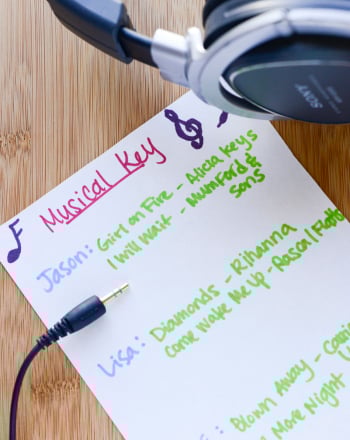 SONY
Musical Key
Jason: Girl on Fire - Alicia Keys
I will wait - Mumford &
Sons
Lisa: Diamonds - Rihanna
Come wake Me up - Rascal Flatts
Blown Away -
More Night